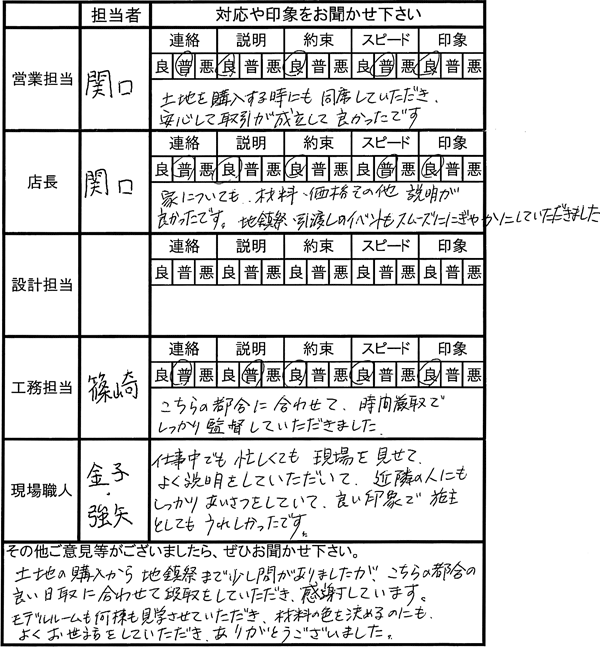 担当者 対応や印象をお聞かせ下さい
営業担当 関口
連絡 説明 約束 スピード 印象
良 普 悪 良 普 悪 良 普 悪 良 普 悪 良 普 悪
土地を購入する時にも同席していただき、
安心して取引が成立して良かったです
店長 関口
連絡 説明 約束 スピード 印象
良 普 悪 良 普 悪 良 普 悪 良 普 悪 良 普 悪
家についても、材料・価格その他 説明が
良かったです。地鎮祭・引渡しのイベントもスムーズににぎやかにしていただきました
設計担当
連絡 説明 約束 スピード 印象
良 普 悪 良 普 悪 良 普 悪 良 普 悪 良 普 悪
工務担当 篠崎
連絡 説明 約束 スピード 印象
良 普 悪 良 普 悪 良 普 悪 良 普 悪 良 普 悪
こちらの都合に合わせて、時間厳取で
しっかり監督していただきました。
現場職人 金子・強矢
仕事中でも忙しくても現場を見せて、
よく説明をしていただいて、近隣の人にも
しっかりあいさつをしていて、良い印象で施主
としてもうれしかったです。
その他ご意見等がございましたら、ぜひお聞かせ下さい。
土地の購入から地鎮祭まで少し間がありましたが、こちらの都合の
良い日取に合わせて段取をしていただき、感謝しています。
モデルルームも何棟も見学させていただき、材料の色を決めるのにも、
よくお世話をしていただき、ありがとうございました。